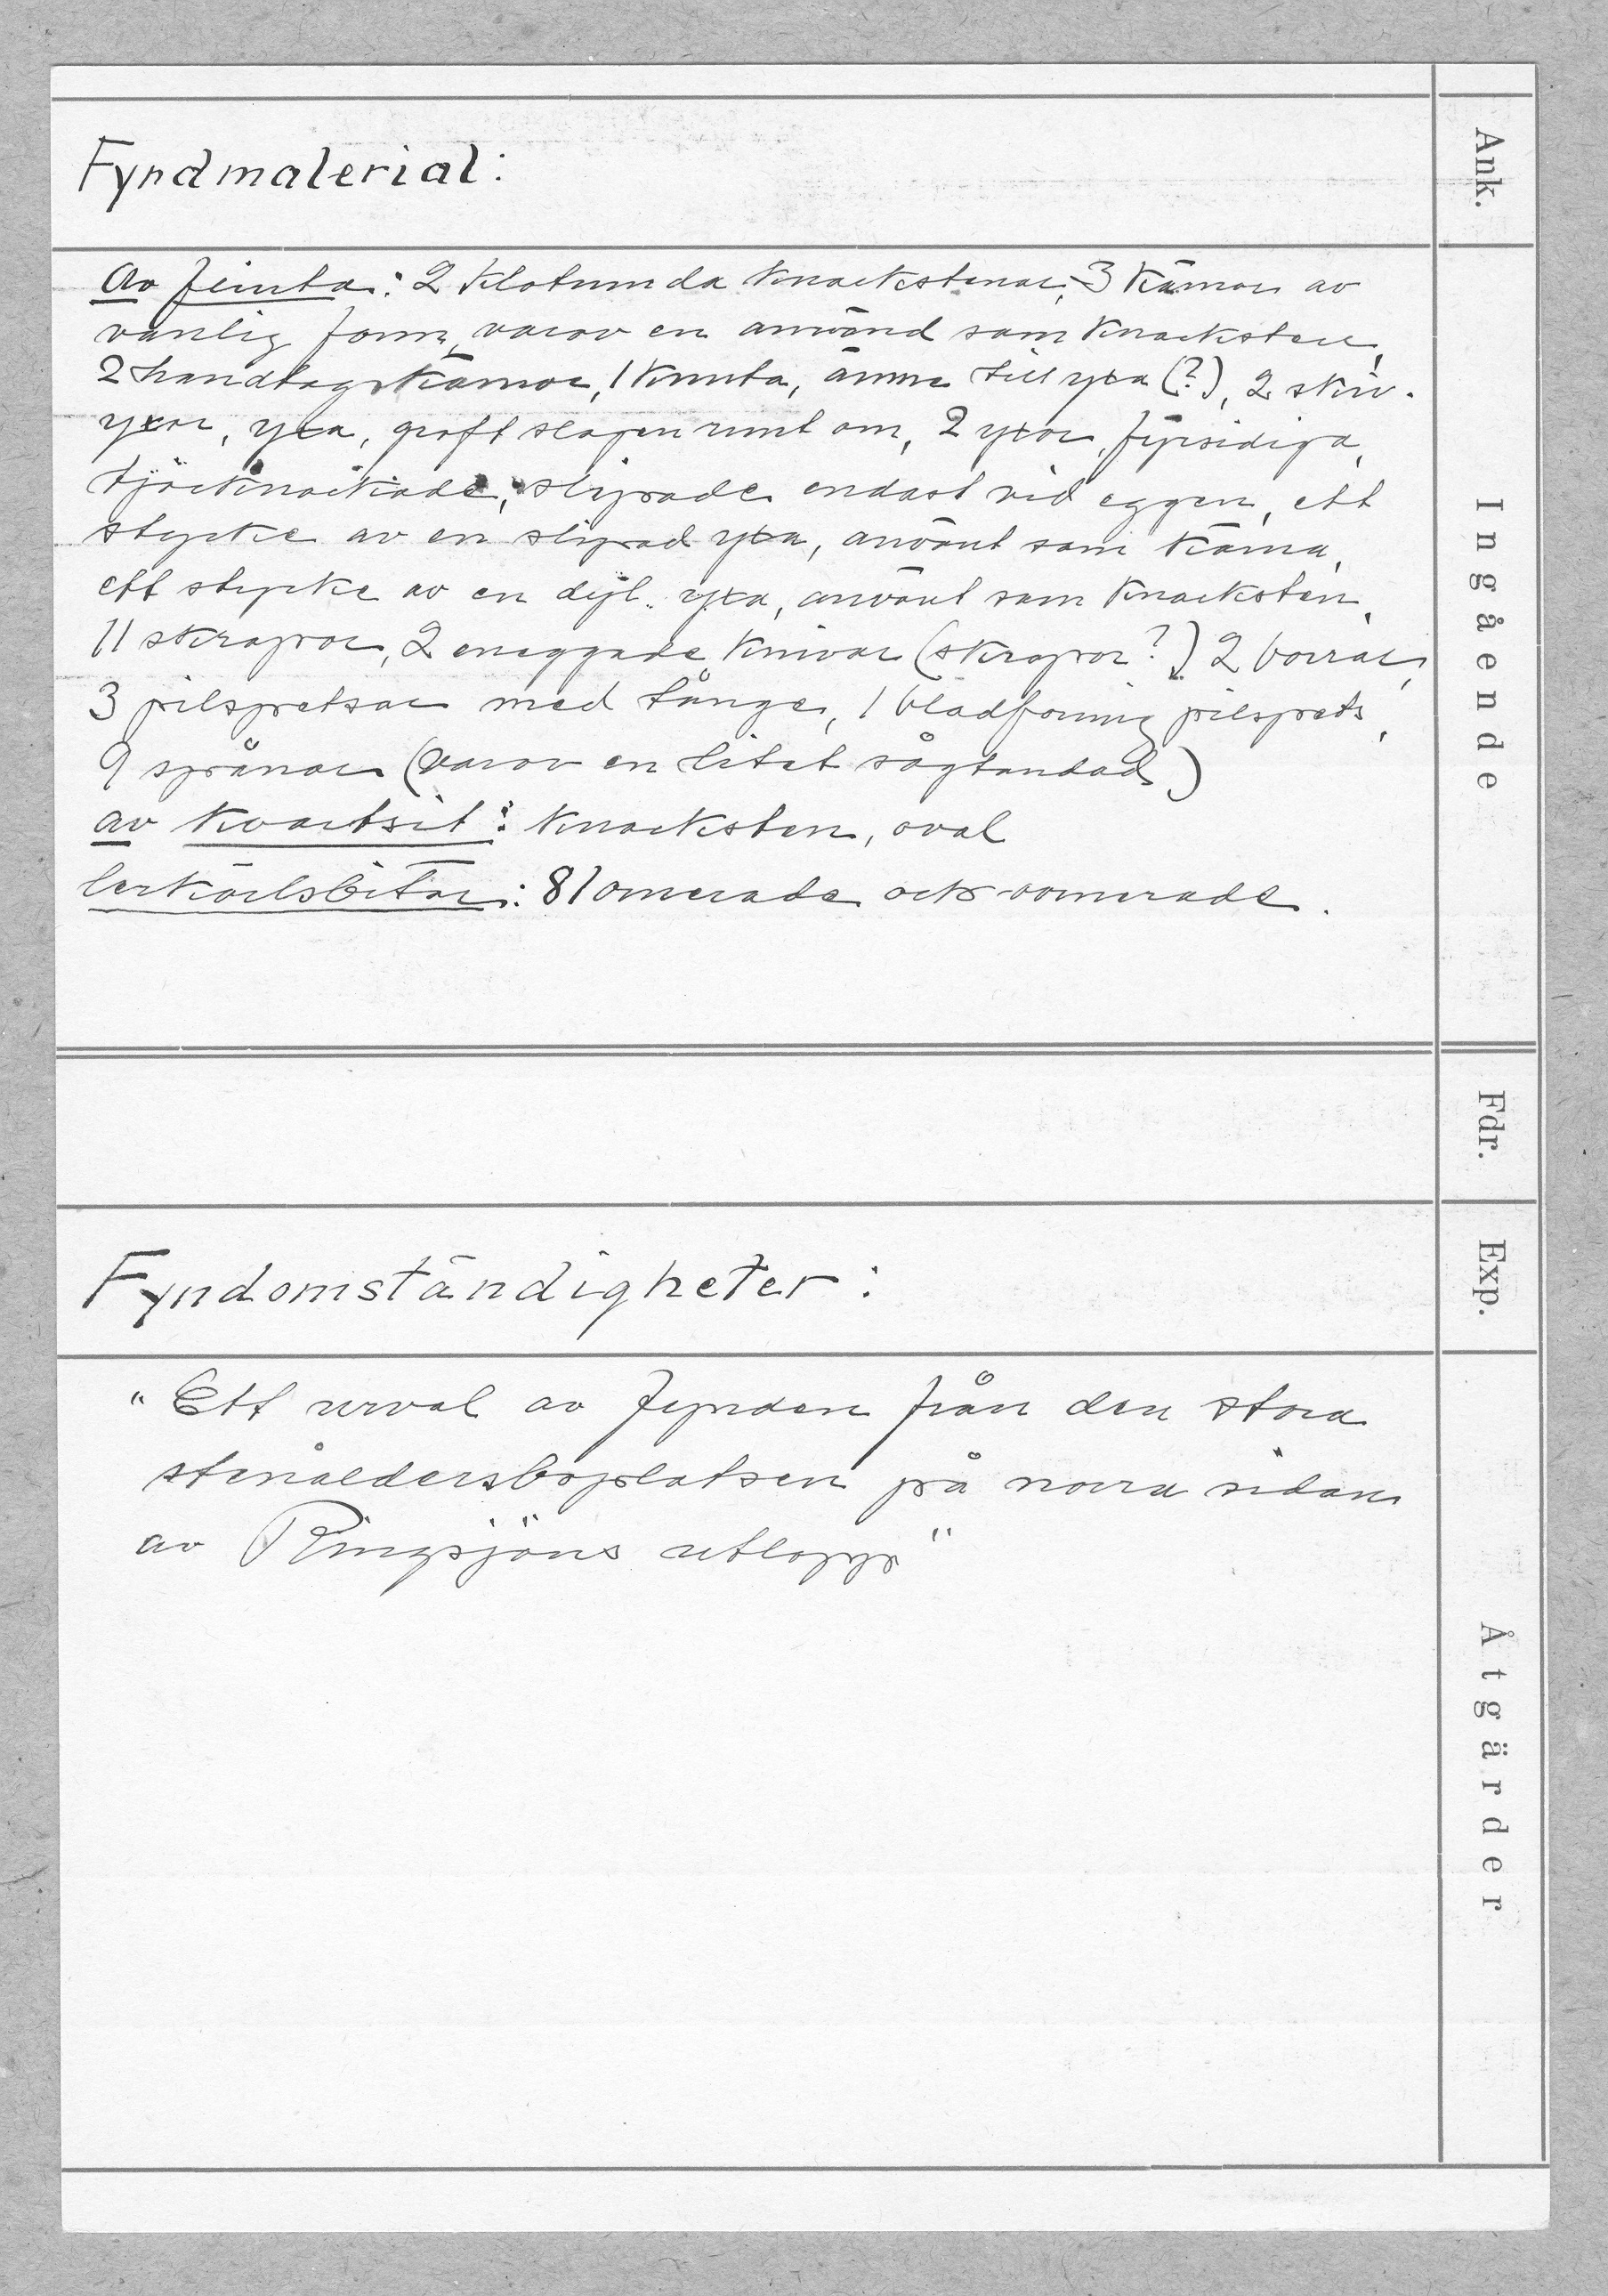 Fyndmaterial:
av flinta: 2 klotrunda knackstenar, 3 kärnor av
vanlig form, varav en använd som knacksten,
2 handtagskärnor, 1 knuta, ämne till yxa (?), 2 skiv-
yxor, yxa, groft slagen runt om, 2 yxor, fyrsidiga,
tjocknackade, slipade endast vid eggen, ett
stycke av en slipad yxa, använt som kärna,
ett stycke av en dyl. yxa, använt som knacksten,
11 skrapor, 2 eneggade knivar (skrapor?) 2 borrar,
3 pilspetsar med tånge, 1 bladformig pilspets,
9 spånor (varav en litet sågtandad)
av kvartsit: knacksten, oval
lerkärlsbitar: 81 ornerade och oornerade.
Fyndomständigheter:
"Ett urval av fynden från den stora
stenåldersboplatsen på norra sidan
av Ringsjöns utlopp"
Ank.
Ingående
Fdr.
Exp.
Åtgärder